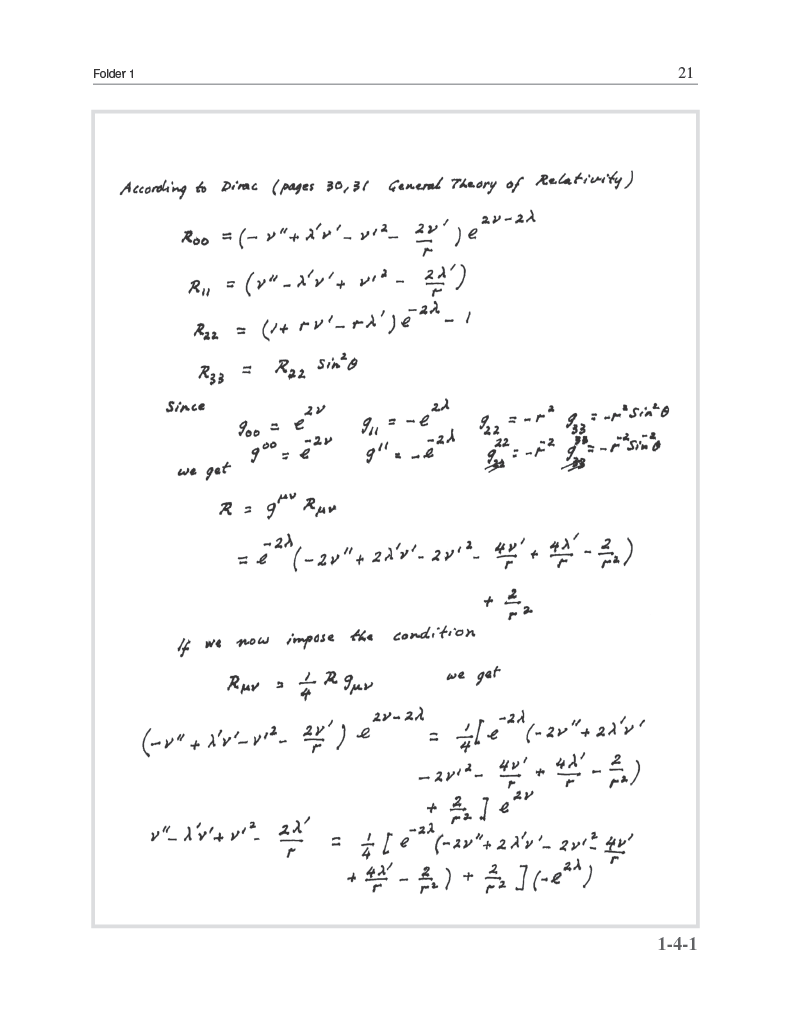 Folder 1 21
According to Dirac (pages 30, 31 General Theory of Relativity)
R₀₀ = (- ν'' + λ'ν' - ν'² - 2ν'/r ) e^(2ν-2λ)
R₁₁ = (ν'' - λ'ν' + ν'² - 2λ'/r)
R₂₂ = (1 + rν' - rλ') e^(-2λ) - 1
R₃₃ = R₂₂ Sin²θ
Since
g₀₀ = e^(2ν) g₁₁ = -e^(2λ) g₂₂ = -r² g₃₃ = -r² Sin²θ
g⁰⁰ = e^(-2ν) g¹¹ = -e^(-2λ) g²² = -r⁻² g³³ = -r⁻² Sin⁻²θ
we get
R = g^(μν) R_(μν)
= e^(-2λ) (-2ν'' + 2λ'ν' - 2ν'² - 4ν'/r + 4λ'/r - 2/r²)
+ 2/r²
If we now impose the condition
R_(μν) = 1/4 R g_(μν) we get
(-ν'' + λ'ν' - ν'² - 2ν'/r ) e^(2ν-2λ) = 1/4 [ e^(-2λ) (-2ν'' + 2λ'ν'
- 2ν'² - 4ν'/r + 4λ'/r - 2/r²)
+ 2/r² ] e^(2ν)
ν'' - λ'ν' + ν'² - 2λ'/r = 1/4 [ e^(-2λ) (-2ν'' + 2λ'ν' - 2ν'² - 4ν'/r
+ 4λ'/r - 2/r² ) + 2/r² ] (-e^(2λ))
1-4-1